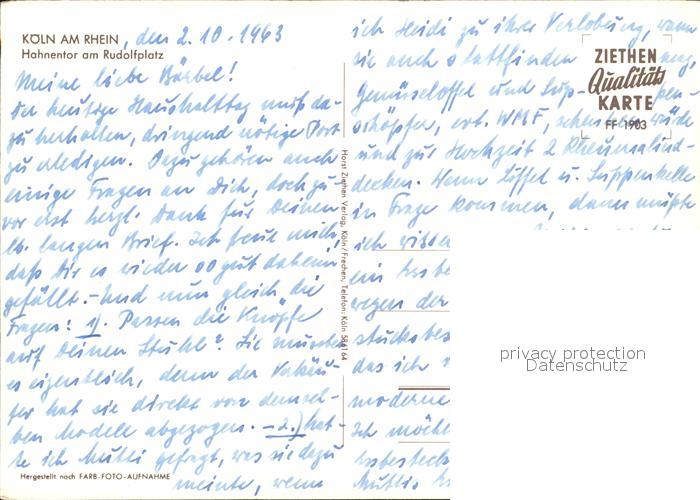 KÖLN AM RHEIN, den 2.10.1963
Hahnentor am Rudolfplatz
Meine liebe Bärbel!
Der heutige Haushalttag muß da-
zu herhalten, dringend nötige Post
zu erledigen. Dazu gehören auch
einige Fragen an Dich, doch zu-
vor erst herzl. Dank für Deinen
lb. langen Brief. Ich freue mich,
daß Dir es wieder so gut daheim
gefällt. - Und nun gleich die
Fragen: 1). Passen die Knöpfe
auf Deinen Stuhl? Sie müssen
es eigentlich, denn der Verkäu-
fer hat sie direkt von demsel-
ben Modell abgezogen. - 2.) hat-
te ich Mutti gefragt, was sie dazu
meinte, wenn
Hergestellt nach FARB-FOTO-AUFNAHME
Horst Ziethen Verlag, Köln/Frechen, Telefon: Köln 586164
ich Heidi zu ihrer Verlobung, wann
sie auch stattfinden mag,
Gemüselöffel und Sup-
pen-
schöpfer, evt. WMF, schenken würde
und zur Hochzeit 2
decken. Wenn Löffel u. Suppenkelle
in Frage kommen, dann müßte
ich wissen
ein
wegen der
stücks
das ich
moderne
Ich möcht
Mutti
ZIETHEN
Qualitäts
KARTE
FF 1903
privacy protection
Datenschutz